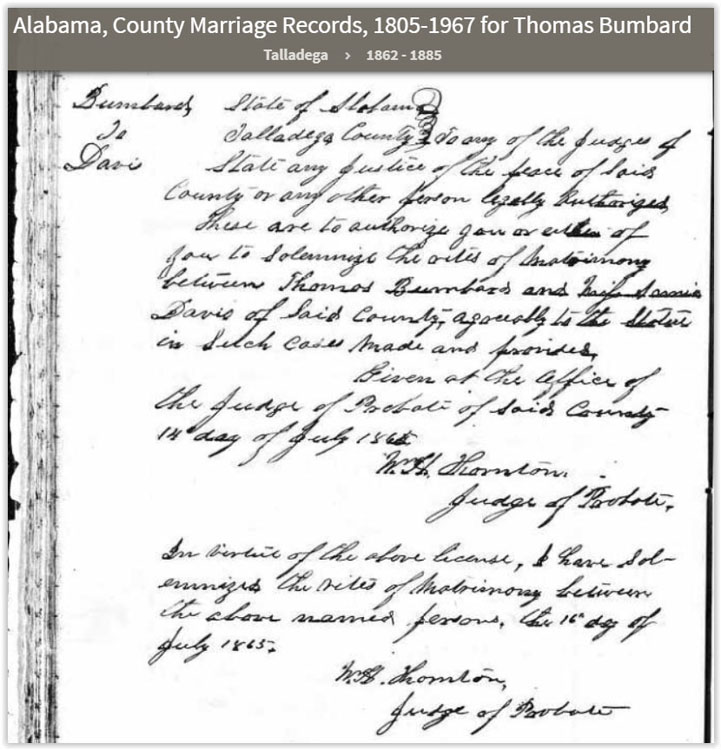 Alabama, County Marriage Records, 1805-1967 for Thomas Bumbard
Talladega › 1862 - 1885
Bumbard, State of Alabama
To Talladega County To any of the Judges of
Davis State any Justice of the peace of Said
County or any other person legally Authorized
These are to authorize you or either of
you to Solemnize the rites of Matrimony
between Thomas Bumbard and Miss
Davis of Said County, agreeably to the Statute
in Such Cases Made and provided,
Given at the Office of
the Judge of Probate of Said County
14 day of July 1865
W.H. Thornton.
Judge of Probate,
In virtue of the above license, I have Sol-
emnized the rites of Matrimony between
the above named persons, the 16 day of
July 1865,
W.H. Thornton,
Judge of Probate